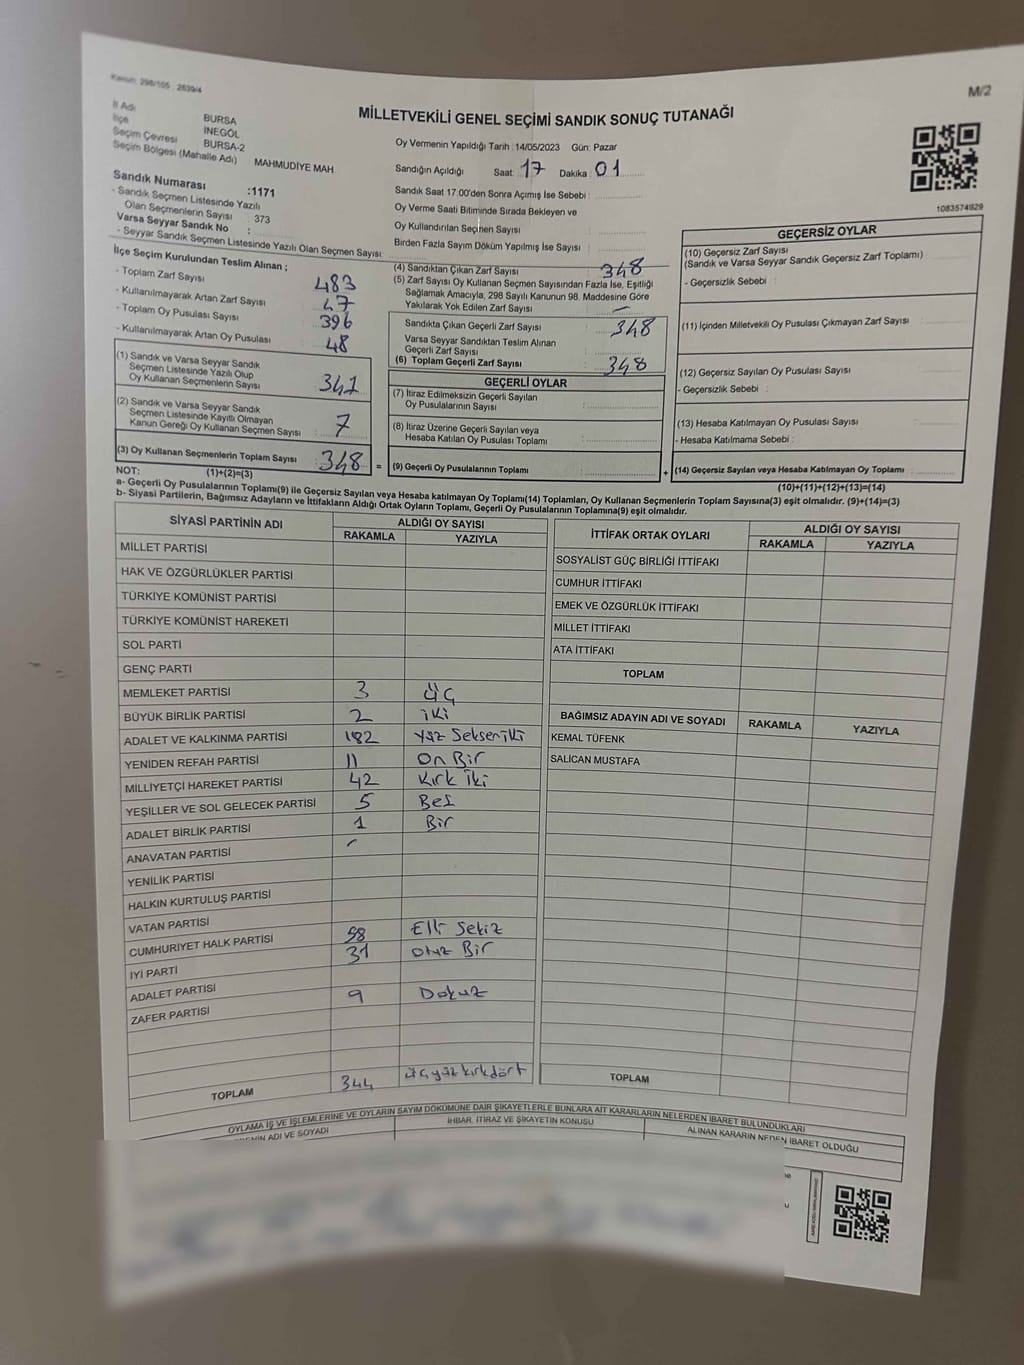 Kanun: 298/105 2839/4
M/2
MİLLETVEKİLİ GENEL SEÇİMİ SANDIK SONUÇ TUTANAĞI
İl Adı BURSA
İlçe İNEGÖL
Seçim Çevresi BURSA-2
Seçim Bölgesi (Mahalle Adı) MAHMUDİYE MAH.
Sandık Numarası :1171
- Sandık Seçmen Listesinde Yazılı
Olan Seçmenlerin Sayısı 373
Varsa Seyyar Sandık No :
- Seyyar Sandık Seçmen Listesinde Yazılı Olan Seçmen Sayısı
Oy Vermenin Yapıldığı Tarih : 14/05/2023 Gün: Pazar
Sandığın Açıldığı Saat: 17 Dakika : 01
Sandık Saat 17.00'den Sonra Açımış İse Sebebi :
Oy Verme Saati Bitiminde Sırada Bekleyen ve
Oy Kullandırılan Seçmen Sayısı :
Birden Fazla Sayım Döküm Yapılmış İse Sayısı :
1083574929
İlçe Seçim Kurulundan Teslim Alınan ;
- Toplam Zarf Sayısı 483
- Kullanılmayarak Artan Zarf Sayısı 47
- Toplam Oy Pusulası Sayısı 396
- Kullanılmayarak Artan Oy Pusulası 48
(1) Sandık ve Varsa Seyyar Sandık
Seçmen Listesinde Yazılı Olup
Oy Kullanan Seçmenlerin Sayısı 341
(2) Sandık ve Varsa Seyyar Sandık
Seçmen Listesinde Kayıtlı Olmayan
Kanun Gereği Oy Kullanan Seçmen Sayısı : 7
(3) Oy Kullanan Seçmenlerin Toplam Sayısı : 348 =
(4) Sandıktan Çıkan Zarf Sayısı : 348
(5) Zarf Sayısı Oy Kullanan Seçmen Sayısından Fazla İse, Eşitliği
Sağlamak Amacıyla, 298 Sayılı Kanunun 98. Maddesine Göre
Yakılarak Yok Edilen Zarf Sayısı : —
Sandıkta Çıkan Geçerli Zarf Sayısı : 348
Varsa Seyyar Sandıktan Teslim Alınan
Geçerli Zarf Sayısı :
(6) Toplam Geçerli Zarf Sayısı : 348
GEÇERLİ OYLAR
(7) İtiraz Edilmeksizin Geçerli Sayılan
Oy Pusulalarının Sayısı :
(8) İtiraz Üzerine Geçerli Sayılan veya
Hesaba Katılan Oy Pusulası Toplamı :
(9) Geçerli Oy Pusulalarının Toplamı : +
GEÇERSİZ OYLAR
(10) Geçersiz Zarf Sayısı
(Sandık ve Varsa Seyyar Sandık Geçersiz Zarf Toplamı) :
- Geçersizlik Sebebi :
(11) İçinden Milletvekili Oy Pusulası Çıkmayan Zarf Sayısı :
(12) Geçersiz Sayılan Oy Pusulası Sayısı :
- Geçersizlik Sebebi :
(13) Hesaba Katılmayan Oy Pusulası Sayısı :
- Hesaba Katılmama Sebebi :
(14) Geçersiz Sayılan veya Hesaba Katılmayan Oy Toplamı :
NOT: (1)+(2)=(3)
(10)+(11)+(12)+(13)=(14)
a- Geçerli Oy Pusulalarının Toplamı(9) ile Geçersiz Sayılan veya Hesaba katılmayan Oy Toplamı(14) Toplamları, Oy Kullanan Seçmenlerin Toplam Sayısına(3) eşit olmalıdır. (9)+(14)=(3)
b- Siyasi Partilerin, Bağımsız Adayların ve İttifakların Aldığı Ortak Oyların Toplamı, Geçerli Oy Pusulalarının Toplamına(9) eşit olmalıdır.
SİYASİ PARTİNİN ADI ALDIĞI OY SAYISI
RAKAMLA YAZIYLA
MİLLET PARTİSİ
HAK VE ÖZGÜRLÜKLER PARTİSİ
TÜRKİYE KOMÜNİST PARTİSİ
TÜRKİYE KOMÜNİST HAREKETİ
SOL PARTİ
GENÇ PARTİ
MEMLEKET PARTİSİ 3 Üç
BÜYÜK BİRLİK PARTİSİ 2 iki
ADALET VE KALKINMA PARTİSİ 182 Yüz Sekseniki
YENİDEN REFAH PARTİSİ 11 On Bir
MİLLİYETÇİ HAREKET PARTİSİ 42 Kırk İki
YEŞİLLER VE SOL GELECEK PARTİSİ 5 Beş
ADALET BİRLİK PARTİSİ 1 Bir
ANAVATAN PARTİSİ
YENİLİK PARTİSİ
HALKIN KURTULUŞ PARTİSİ
VATAN PARTİSİ
CUMHURİYET HALK PARTİSİ 58 Elli Sekiz
İYİ PARTİ 31 Otuz Bir
ADALET PARTİSİ
ZAFER PARTİSİ 9 Dokuz
TOPLAM 344 üçyüzkırkdört
İTTİFAK ORTAK OYLARI ALDIĞI OY SAYISI
RAKAMLA YAZIYLA
SOSYALİST GÜÇ BİRLİĞİ İTTİFAKI
CUMHUR İTTİFAKI
EMEK VE ÖZGÜRLÜK İTTİFAKI
MİLLET İTTİFAKI
ATA İTTİFAKI
TOPLAM
BAĞIMSIZ ADAYIN ADI VE SOYADI RAKAMLA YAZIYLA
KEMAL TÜFENK
SALİCAN MUSTAFA
TOPLAM
OYLAMA İŞ VE İŞLEMLERİNE VE OYLARIN SAYIM DÖKÜMÜNE DAİR ŞİKAYETLERLE BUNLARA AİT KARARLARIN NELERDEN İBARET BULUNDUKLARI
ADI VE SOYADI İHBAR, İTİRAZ VE ŞİKAYETİN KONUSU ALINAN KARARIN NEDEN İBARET OLDUĞU